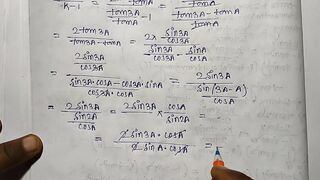 k-1 = tanA / tan3A/tanA - 1 = tanA / tan3A - tanA / tanA
= 2tan3A / tan3A-tanA = 2x sin3A/cos3A / sin3A/cos3A - sinA/cosA
= 2sin3A/cos3A / sin3A·cosA-cos3A·sinA / cos3A·cosA = 2sin3A / sin(3A-A)/cosA
= 2sin3A / sin2A/cosA = 2sin3A × cosA/sin2A =
= 2sin3A·cosA / 2sinA·cosA =